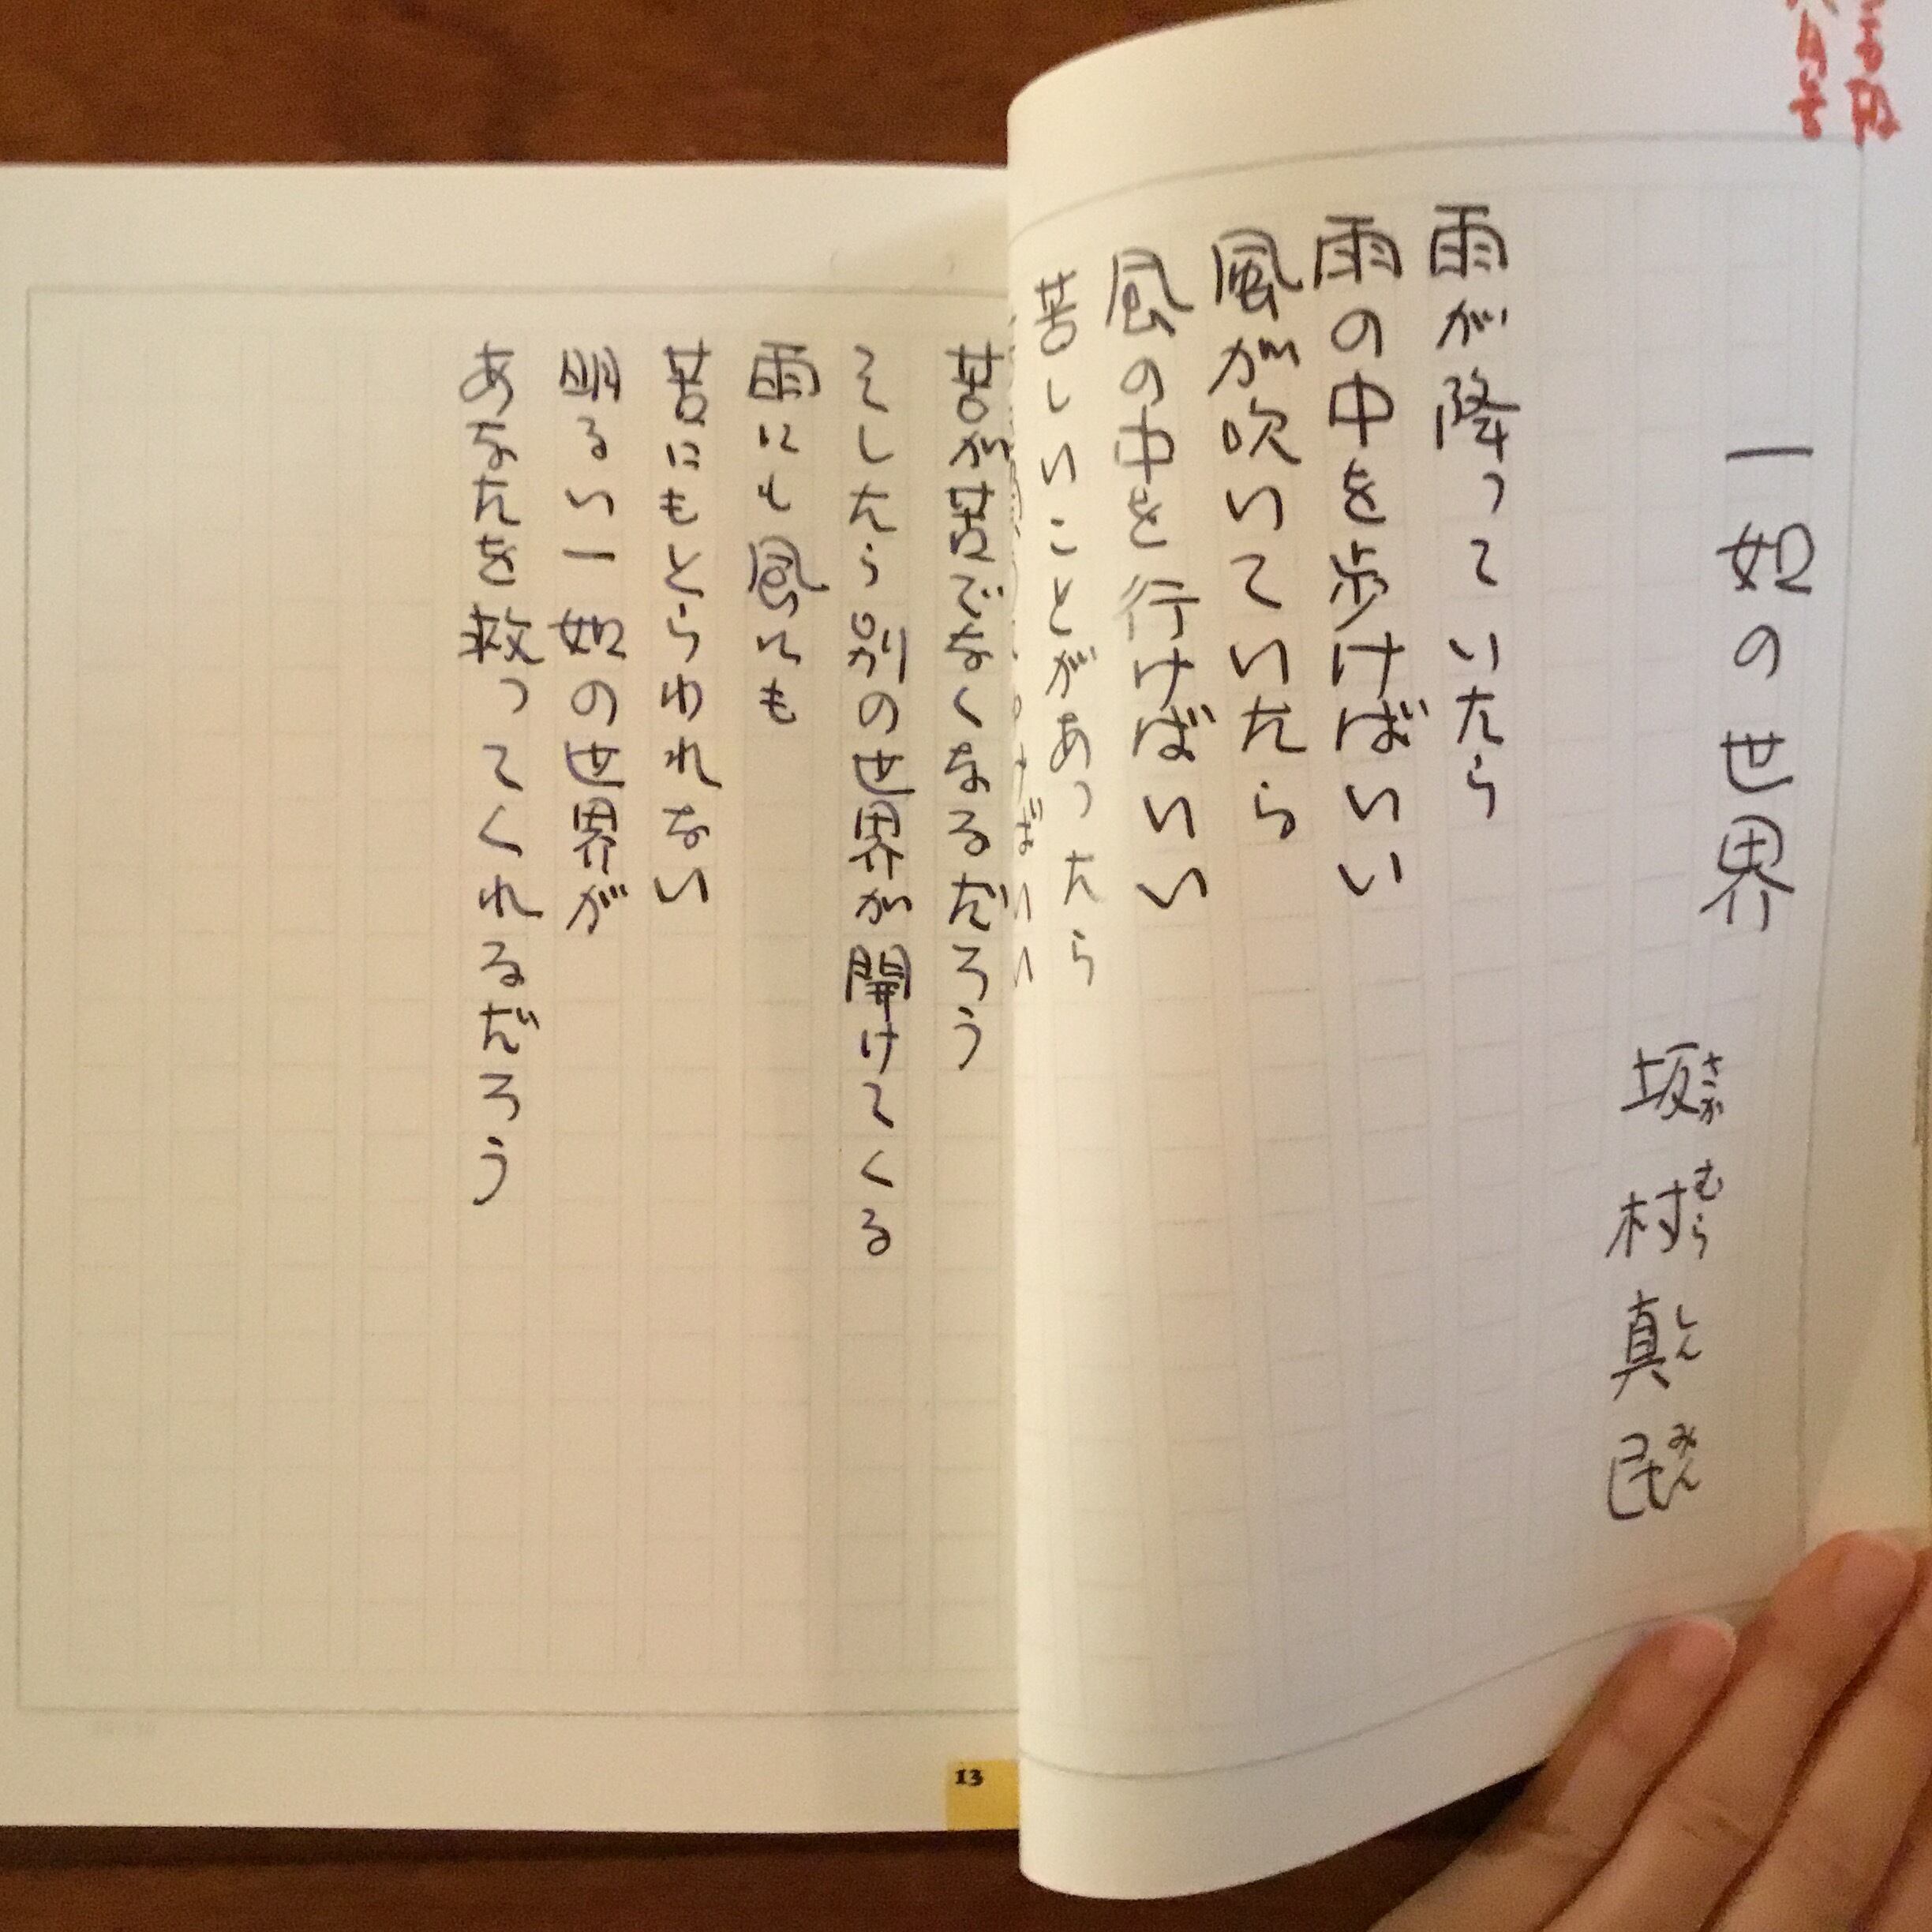 一如の世界
坂村真民
さか むら しん みん
雨が降っていたら
雨の中を歩けばいい
風が吹いていたら
風の中を行けばいい
苦しいことがあったら
苦が苦でなくなるだろう
そしたら別の世界が開けてくる
雨にも風にも
苦にもとらわれない
明るい一如の世界が
あなたを救ってくれるだろう
13